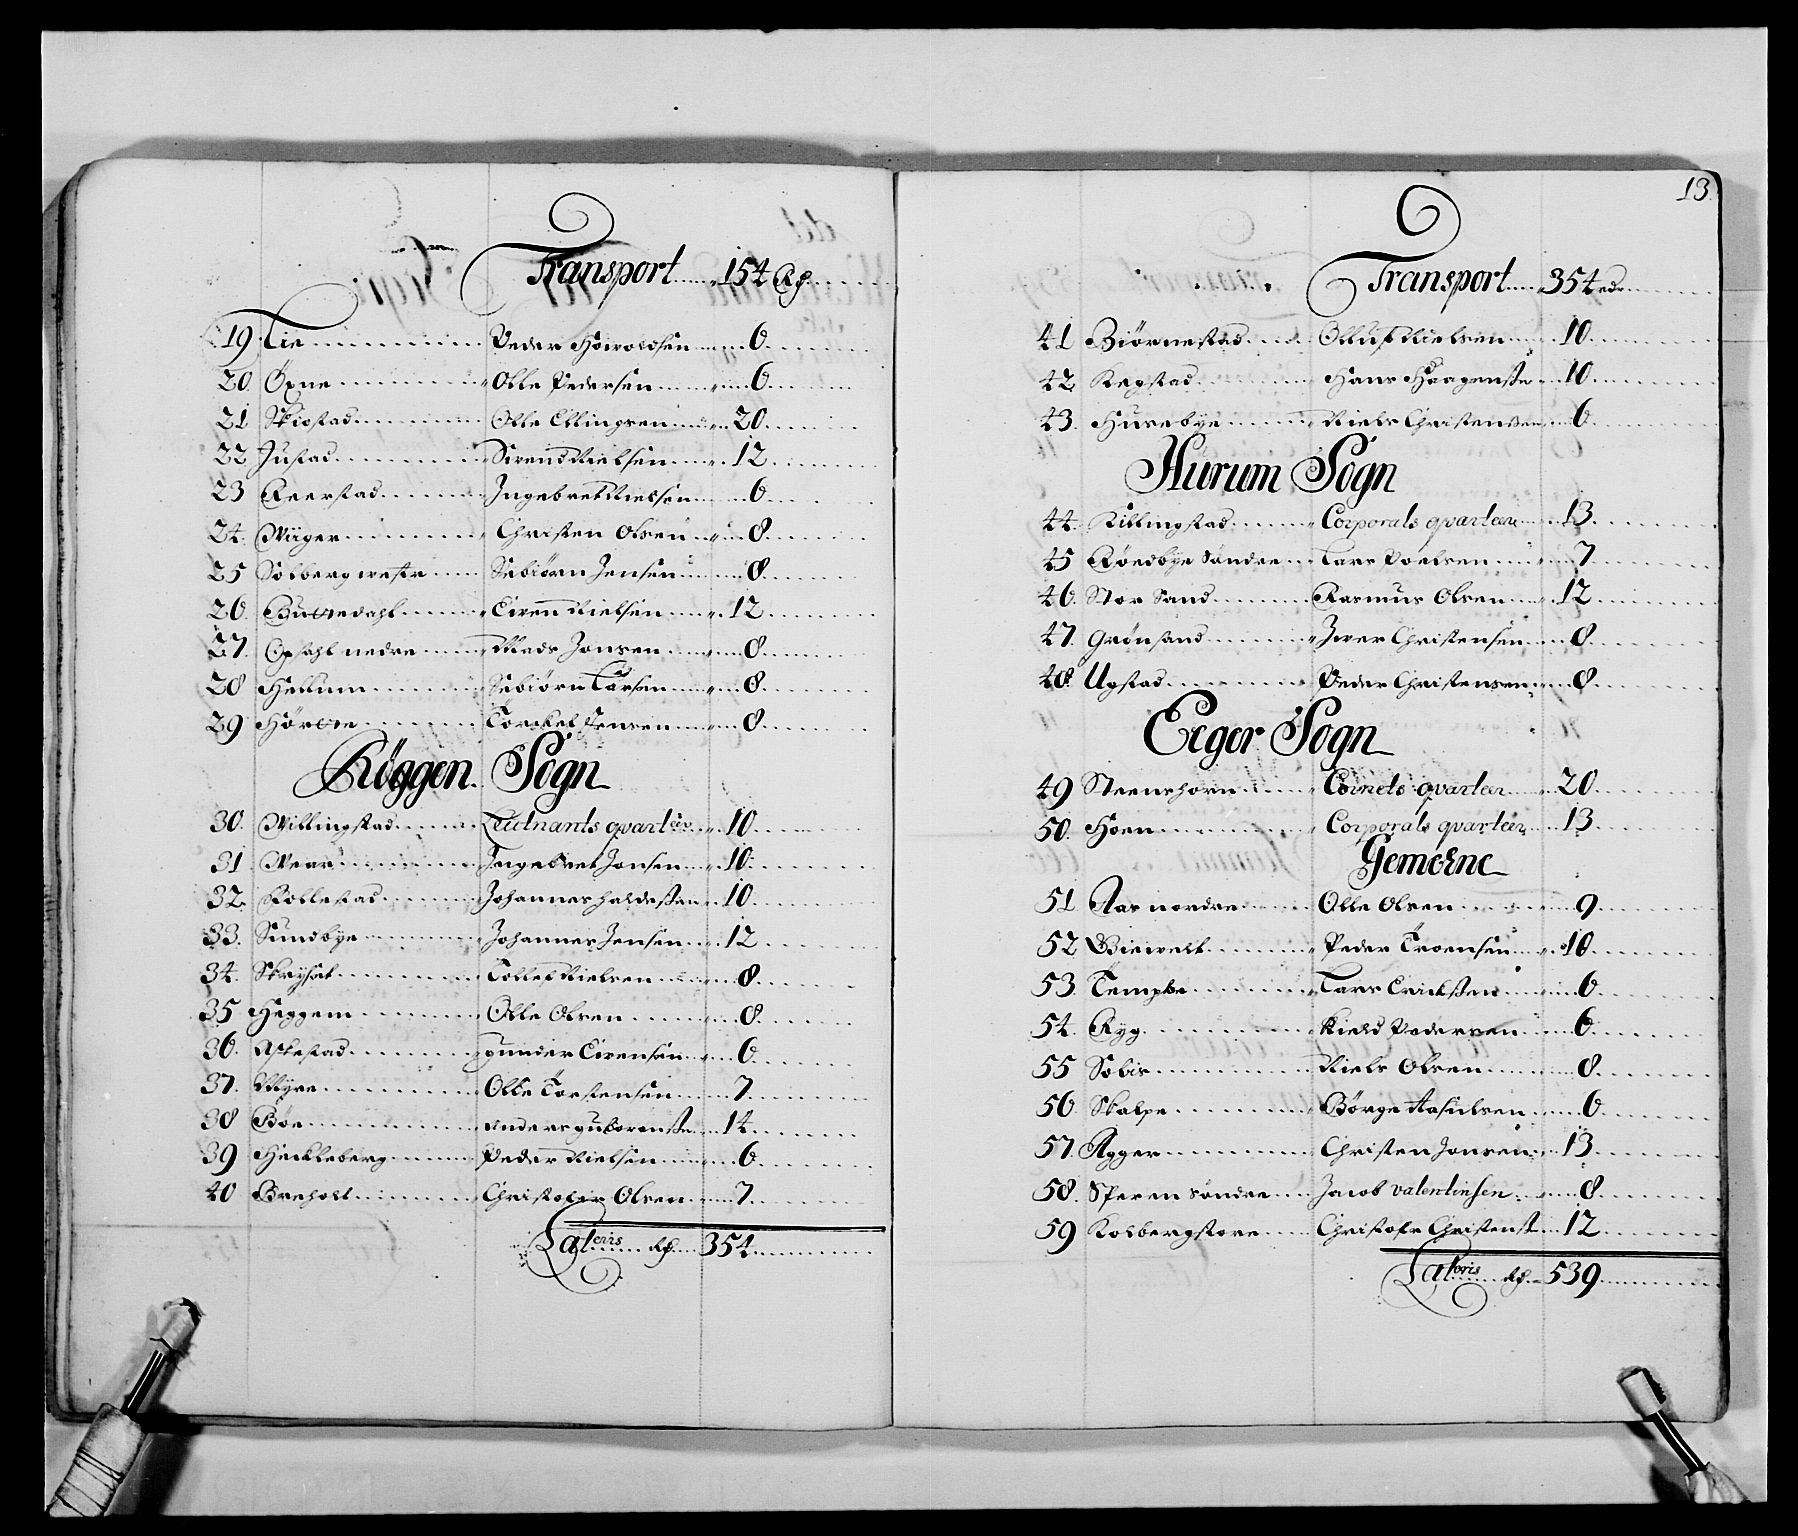 Transport 154 Rd
19 Lie Peder Howoldsen 6
20 Öxne Olle Pedersen 6
21 Skiostad Olle Ellingsen 20
22 Justad Sivend Nielsen 12
23 Reerstad Ingebret Nielsen 6
24. Wüger Christen Olsen 8
25 Solberg westr Sebiørn Jensen 8
26. Buskedahl Eivend Nielsen 12
27. Opsahl nedre Mads Jonsen 8
28 Hellum Sebiörn Larsen 8
29 Hörwie Torckel Jensen 8
Röggen Sogn
30. Willingstad Leutnants qvarteer 10
31 Wear Ingebret Jonsen 10
32. Rollestad Johannes Haldersen 10
33. Sundbye Johannes Jensen 12
34. Skryset Tollef Nielsen 8
35 Heggem Olle Olsen 8
36. Askestad gunder Eivensen 6
37. Myre Olle Torstensen 7
38 Böe anders gulbrense 14
39 Heckleberg Peder Nielsen 6
40 Breholl Christofer Olsen 7
Lateris Rd 354
13.
Transport 354 rdr
41 Biörnestad Olluf Nielsen 10
42 Regstad Hans Haagense 10
43. Husebye Niels Christensen 6
Hurum Sogn
44. Killingstad Corporals qvarteer 13
45 Röedbye söndre Lars Poelsen 7
46. Stor Sand Rasmus Olsen 12
47. Grönsand Iver Christensen 8
48. Ugstad Peder Christensen 8
Eeger Sogn
49 Steenshorn Cornets qvarteer 20
50. Hoen Corporals qvarteer 13
Gemeene
51 Aas nordre Olle Olsen 9
52 Biewelt Peder Troensen 10
53. Temple Lars Erichsen 6
54. Ryg Kield Pedersen 6
55 Solis Niels Olsen 8
56. Skalpe Börge Aasulsen 6
57. Agger Christen Jonsen 13
58. Speren söndre Jacob valentinsen 8
59 Kolbergstore Christofr Christens 12
Lateris Rd 539